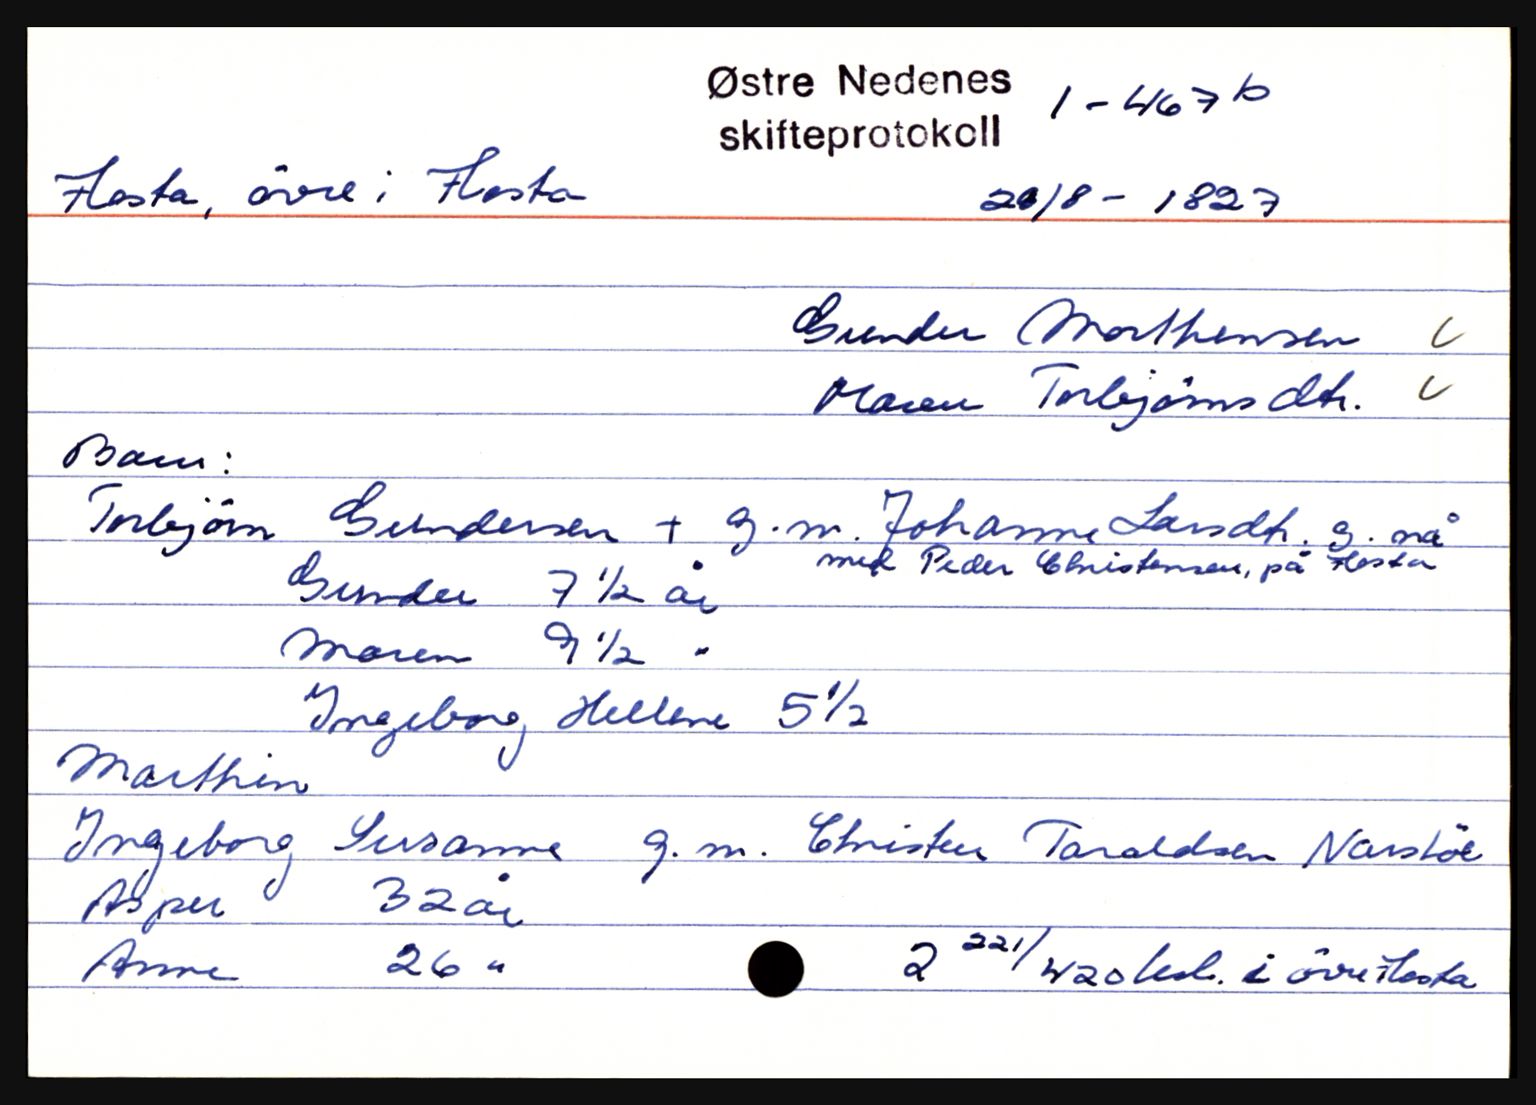 Østre Nedenes 1-467 b
skifteprotokoll
Flosta, övre i Flosta 20/8 - 1827
Gunder Morthensen
Maren Torbjörnsdtr.
Barn:
Torbjörn Gundersen + g.m. Johanne Larsdtr. g. nå
med Peder Christensen, på Flosta
Gunder 7 1/2 år
Maren 9 1/2 "
Ingeborg Hellene 5 1/2
Marthin
Ingeborg Susanne g. m. Christen Taraldsen Narstöe
Asper 32 år
Anne 26 " 2 221/420 hud. i övre Flosta